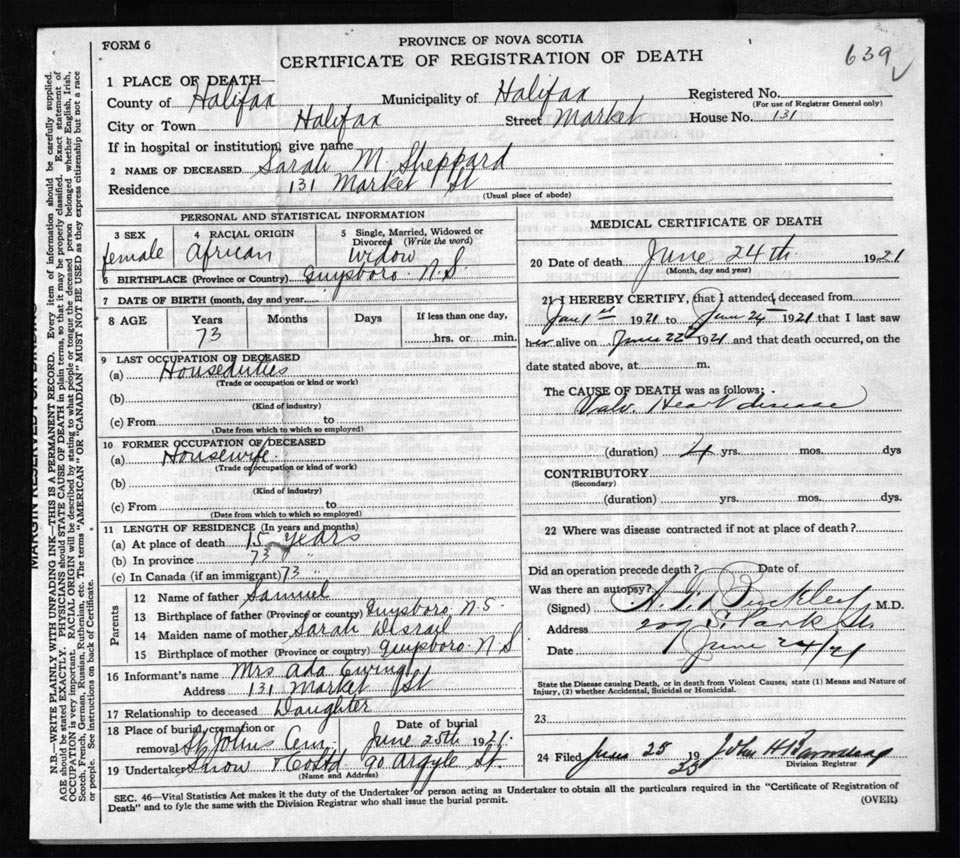 FORM 6
PROVINCE OF NOVA SCOTIA
CERTIFICATE OF REGISTRATION OF DEATH
639
1 PLACE OF DEATH
County of Halifax Municipality of Halifax Registered No.
(For use of Registrar General only)
City or Town Halifax Street Market House No. 131
If in hospital or institution, give name
2 NAME OF DECEASED Sarah M. Sheppard
Residence 131 Market St
(Usual place of abode)
PERSONAL AND STATISTICAL INFORMATION
3 SEX 4 RACIAL ORIGIN 5 Single, Married, Widowed or Divorced (Write the word)
female African Widow
6 BIRTHPLACE (Province or Country) Guysboro. N.S.
7 DATE OF BIRTH (month, day and year)
8 AGE Years Months Days If less than one day,
73 hrs. or min.
9 LAST OCCUPATION OF DECEASED
(a) Houseduties
(Trade or occupation or kind of work)
(b)
(Kind of industry)
(c) From to
(Date from which to which so employed)
10 FORMER OCCUPATION OF DECEASED
(a) Housewife.
(Trade or occupation or kind of work)
(b)
(Kind of industry)
(c) From to
(Date from which to which so employed)
11 LENGTH OF RESIDENCE (In years and months)
(a) At place of death 15 years
(b) In province 73 "
(c) In Canada (if an immigrant) 73 "
Parents
12 Name of father Samuel
13 Birthplace of father (Province or country) Guysboro. N.S.
14 Maiden name of mother Sarah Disrail
15 Birthplace of mother (Province or country) Guysboro. N.S
16 Informant's name Mrs Ada Ewing
Address 131 Market St
17 Relationship to deceased Daughter
18 Place of burial, cremation or removal St Johns Cem. Date of burial June 25th 1921.
19 Undertaker Snow & Co Ltd 90 Argyle St.
(Name and Address)
MEDICAL CERTIFICATE OF DEATH
20 Date of death June 24th. 1921
(Month, day and year)
21 I HEREBY CERTIFY, that I attended deceased from
Jan 1st 1921 to June 24th 1921 that I last saw
her alive on June 22nd 1921 and that death occurred, on the
date stated above, at m.
The CAUSE OF DEATH was as follows:
Valv. Heart disease
(duration) 4 yrs. mos. dys
CONTRIBUTORY
(Secondary)
(duration) yrs. mos. dys.
22 Where was disease contracted if not at place of death?
Did an operation precede death? Date of
Was there an autopsy?
(Signed) M.D.
Address 209 S. Park St.
Date June 24/21
State the Disease causing Death, or in death from Violent Causes, state (1) Means and Nature of
Injury, (2) whether Accidental, Suicidal or Homicidal.
23
24 Filed June 25 19 John H
23 Division Registrar
SEC. 46—Vital Statistics Act makes it the duty of the Undertaker or person acting as Undertaker to obtain all the particulars required in the "Certificate of Registration of
Death" and to fyle the same with the Division Registrar who shall issue the burial permit. (OVER)
MARGIN RESERVED FOR BINDING
N.B.—WRITE PLAINLY WITH UNFADING INK—THIS IS A PERMANENT RECORD. Every item of information should be carefully supplied.
AGE should be stated EXACTLY. PHYSICIANS should STATE CAUSE OF DEATH in plain terms, so that it may be properly classified. Exact statement of
OCCUPATION is very important. RACIAL ORIGIN will be described by stating to what people or tongue the deceased person belonged whether English, Irish,
Scotch, French, German, Russian, Ruthenian, etc. The terms "AMERICAN" or "CANADIAN" MUST NOT BE USED as they express citizenship but not a race
or people. See instructions on back of Certificate.